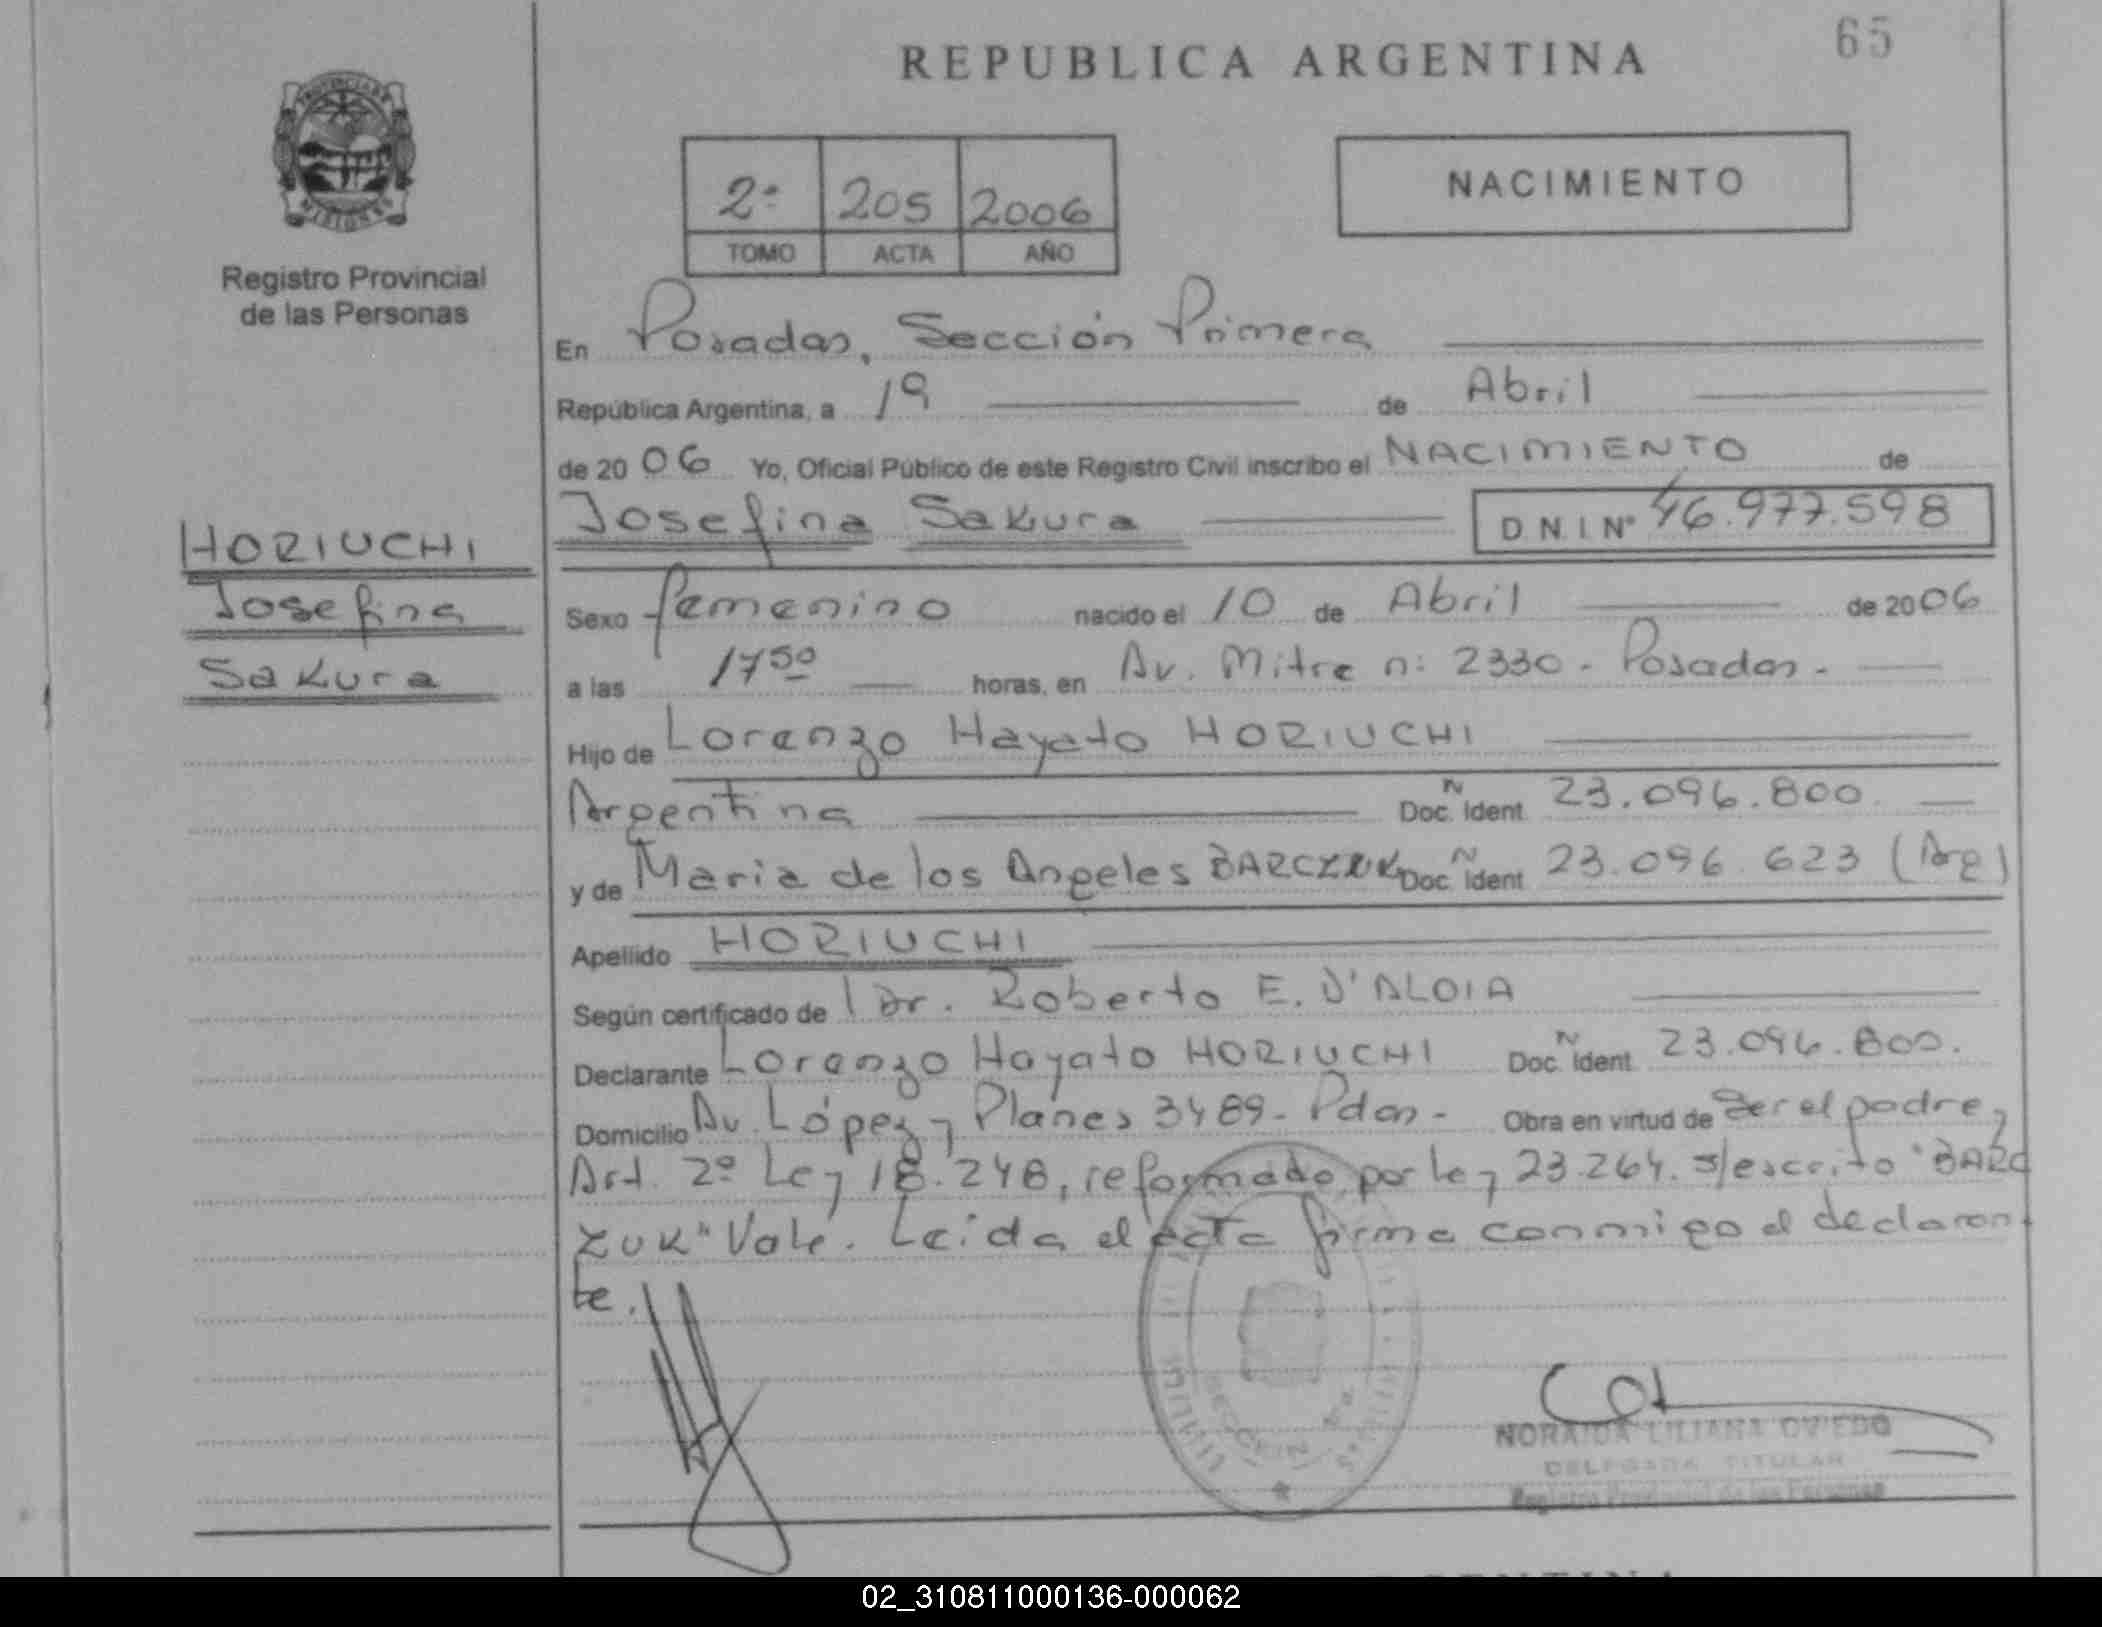 REPUBLICA ARGENTINA
65
PROVINCIA DE MISIONES
Registro Provincial
de las Personas
2º 205 2006
TOMO ACTA AÑO
NACIMIENTO
En Posadas, Sección Primera
República Argentina, a 19 de Abril
de 2006 Yo, Oficial Público de este Registro Civil inscribo el NACIMIENTO de
Josefina Sakura D.N.I. Nº 46.977.598
HORIUCHI
Josefina
Sakura
Sexo femenino nacido el 10 de Abril de 2006
a las 17 50 horas, en Av. Mitre nº 2330 - Posadas -
Hijo de Lorenzo Hayato HORIUCHI
Argentina Doc. Ident. N 23.096.800
y de Maria de los Angeles BARCZUK Doc. Ident N 23.096.623 (Arg)
Apellido HORIUCHI
Según certificado de Dr. Roberto E. D'ALOIA
Declarante Lorenzo Hayato HORIUCHI Doc. Ident. N 23.096.800.
Domicilio Av. López y Planes 3489 - Pdas - Obra en virtud de Ser el padre y
Art. 2º Ley 18.248, reformado por ley 23.264. s/escrito "BARC
ZUK" Vale. Leída el acta firma conmigo el declaran
te.
SECCION 1ra.
NORAIDA LILIANA OVIEDO
DELEGADA TITULAR
Registro Provincial de las Personas
02_310811000136-000062